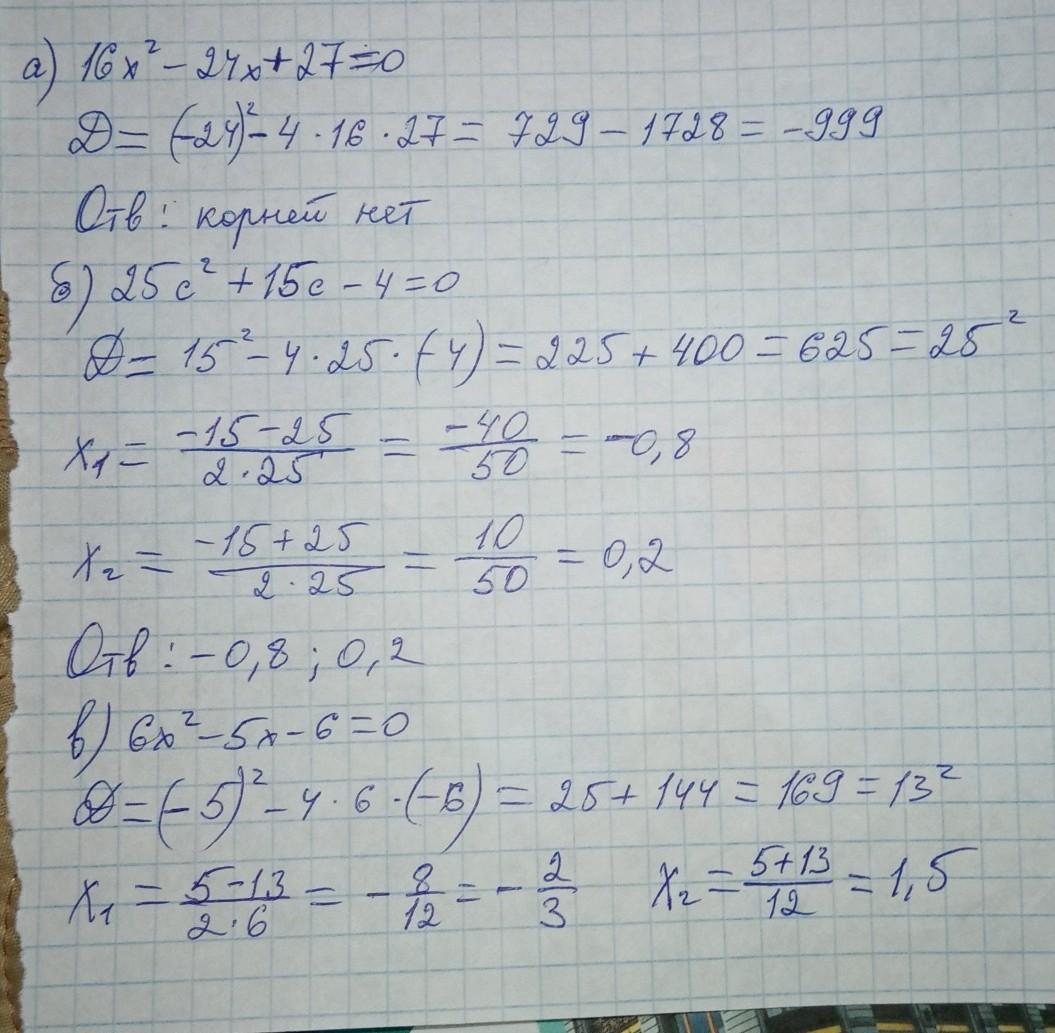 а) 16x² - 24x + 27 = 0
Д = (-24)² - 4 · 16 · 27 = 729 - 1728 = -999
Отв: корней нет
б) 25c² + 15c - 4 = 0
Д = 15² - 4 · 25 · (-4) = 225 + 400 = 625 = 25²
x₁ = (-15 - 25)/(2 · 25) = -40/50 = -0,8
x₂ = (-15 + 25)/(2 · 25) = 10/50 = 0,2
Отв: -0,8 ; 0,2
в) 6x² - 5x - 6 = 0
Д = (-5)² - 4 · 6 · (-6) = 25 + 144 = 169 = 13²
x₁ = (5 - 13)/(2 · 6) = - 8/12 = - 2/3 x₂ = (5 + 13)/12 = 1,5